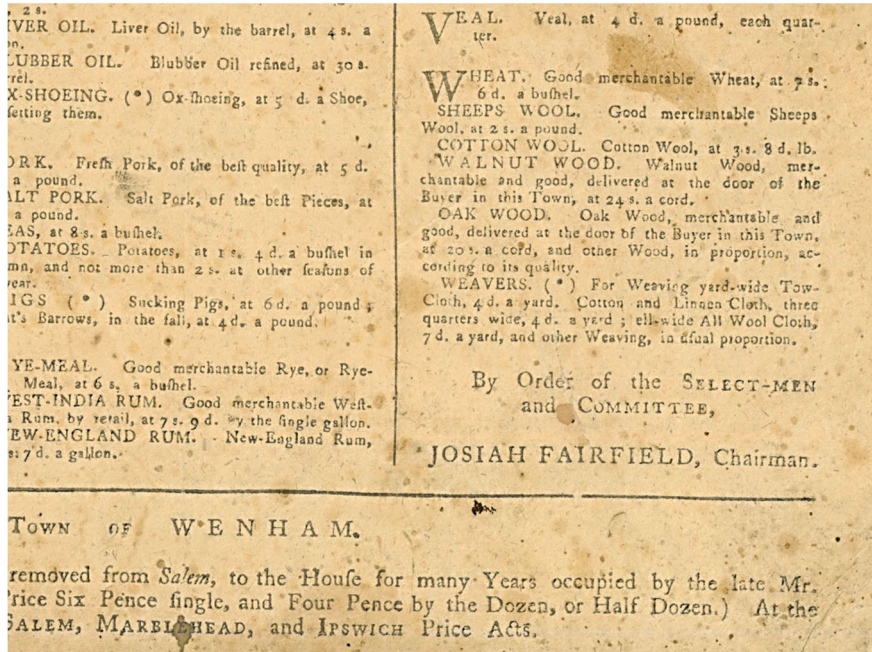 2 s.
IVER OIL. Liver Oil, by the barrel, at 4 s. a
on.
LUBBER OIL. Blubber Oil refined, at 30 s.
rrel.
X-SHOEING. (*) Ox-ſhoeing, at 5 d. a Shoe,
ſetting them.
ORK. Freſh Pork, of the beſt quality, at 5 d.
a pound.
ALT PORK. Salt Pork, of the beſt Pieces, at
a pound.
EAS, at 8 s. a buſhel.
OTATOES. Potatoes, at 1 s. 4 d. a buſhel in
mn, and not more than 2 s. at other ſeaſons of
year.
IGS (*) Sucking Pigs, at 6 d. a pound ;
at's Barrows, in the fall, at 4 d. a pound.
YE-MEAL. Good merchantable Rye, or Rye-
Meal, at 6 s. a buſhel.
VEST-INDIA RUM. Good merchantable Weſt-
a Rum, by retail, at 7 s. 9 d. by the ſingle gallon.
NEW-ENGLAND RUM. New-England Rum,
7 d. a gallon.
VEAL. Veal, at 4 d. a pound, each quar-
ter.
WHEAT. Good merchantable Wheat, at 7 s.
6 d. a buſhel.
SHEEPS WOOL. Good merchantable Sheeps
Wool, at 2 s. a pound.
COTTON WOOL. Cotton Wool, at 3 s. 8 d. lb.
WALNUT WOOD. Walnut Wood, mer-
chantable and good, delivered at the door of the
Buyer in this Town, at 24 s. a cord.
OAK WOOD. Oak Wood, merchantable and
good, delivered at the door of the Buyer in this Town,
at 20 s. a cord, and other Wood, in proportion, ac-
cording to its quality.
WEAVERS. (*) For Weaving yard-wide Tow-
Cloth, 4 d. a yard. Cotton and Linnen Cloth, three
quarters wide, 4 d. a yard ; ell-wide All Wool Cloth,
7 d. a yard, and other Weaving, in uſual proportion.
By Order of the SELECT-MEN
and COMMITTEE,
JOSIAH FAIRFIELD, Chairman.
TOWN OF WENHAM.
removed from Salem, to the Houſe for many Years occupied by the late Mr.
Price Six Pence ſingle, and Four Pence by the Dozen, or Half Dozen.) At the
SALEM, MARBLEHEAD, and IPSWICH Price Acts.